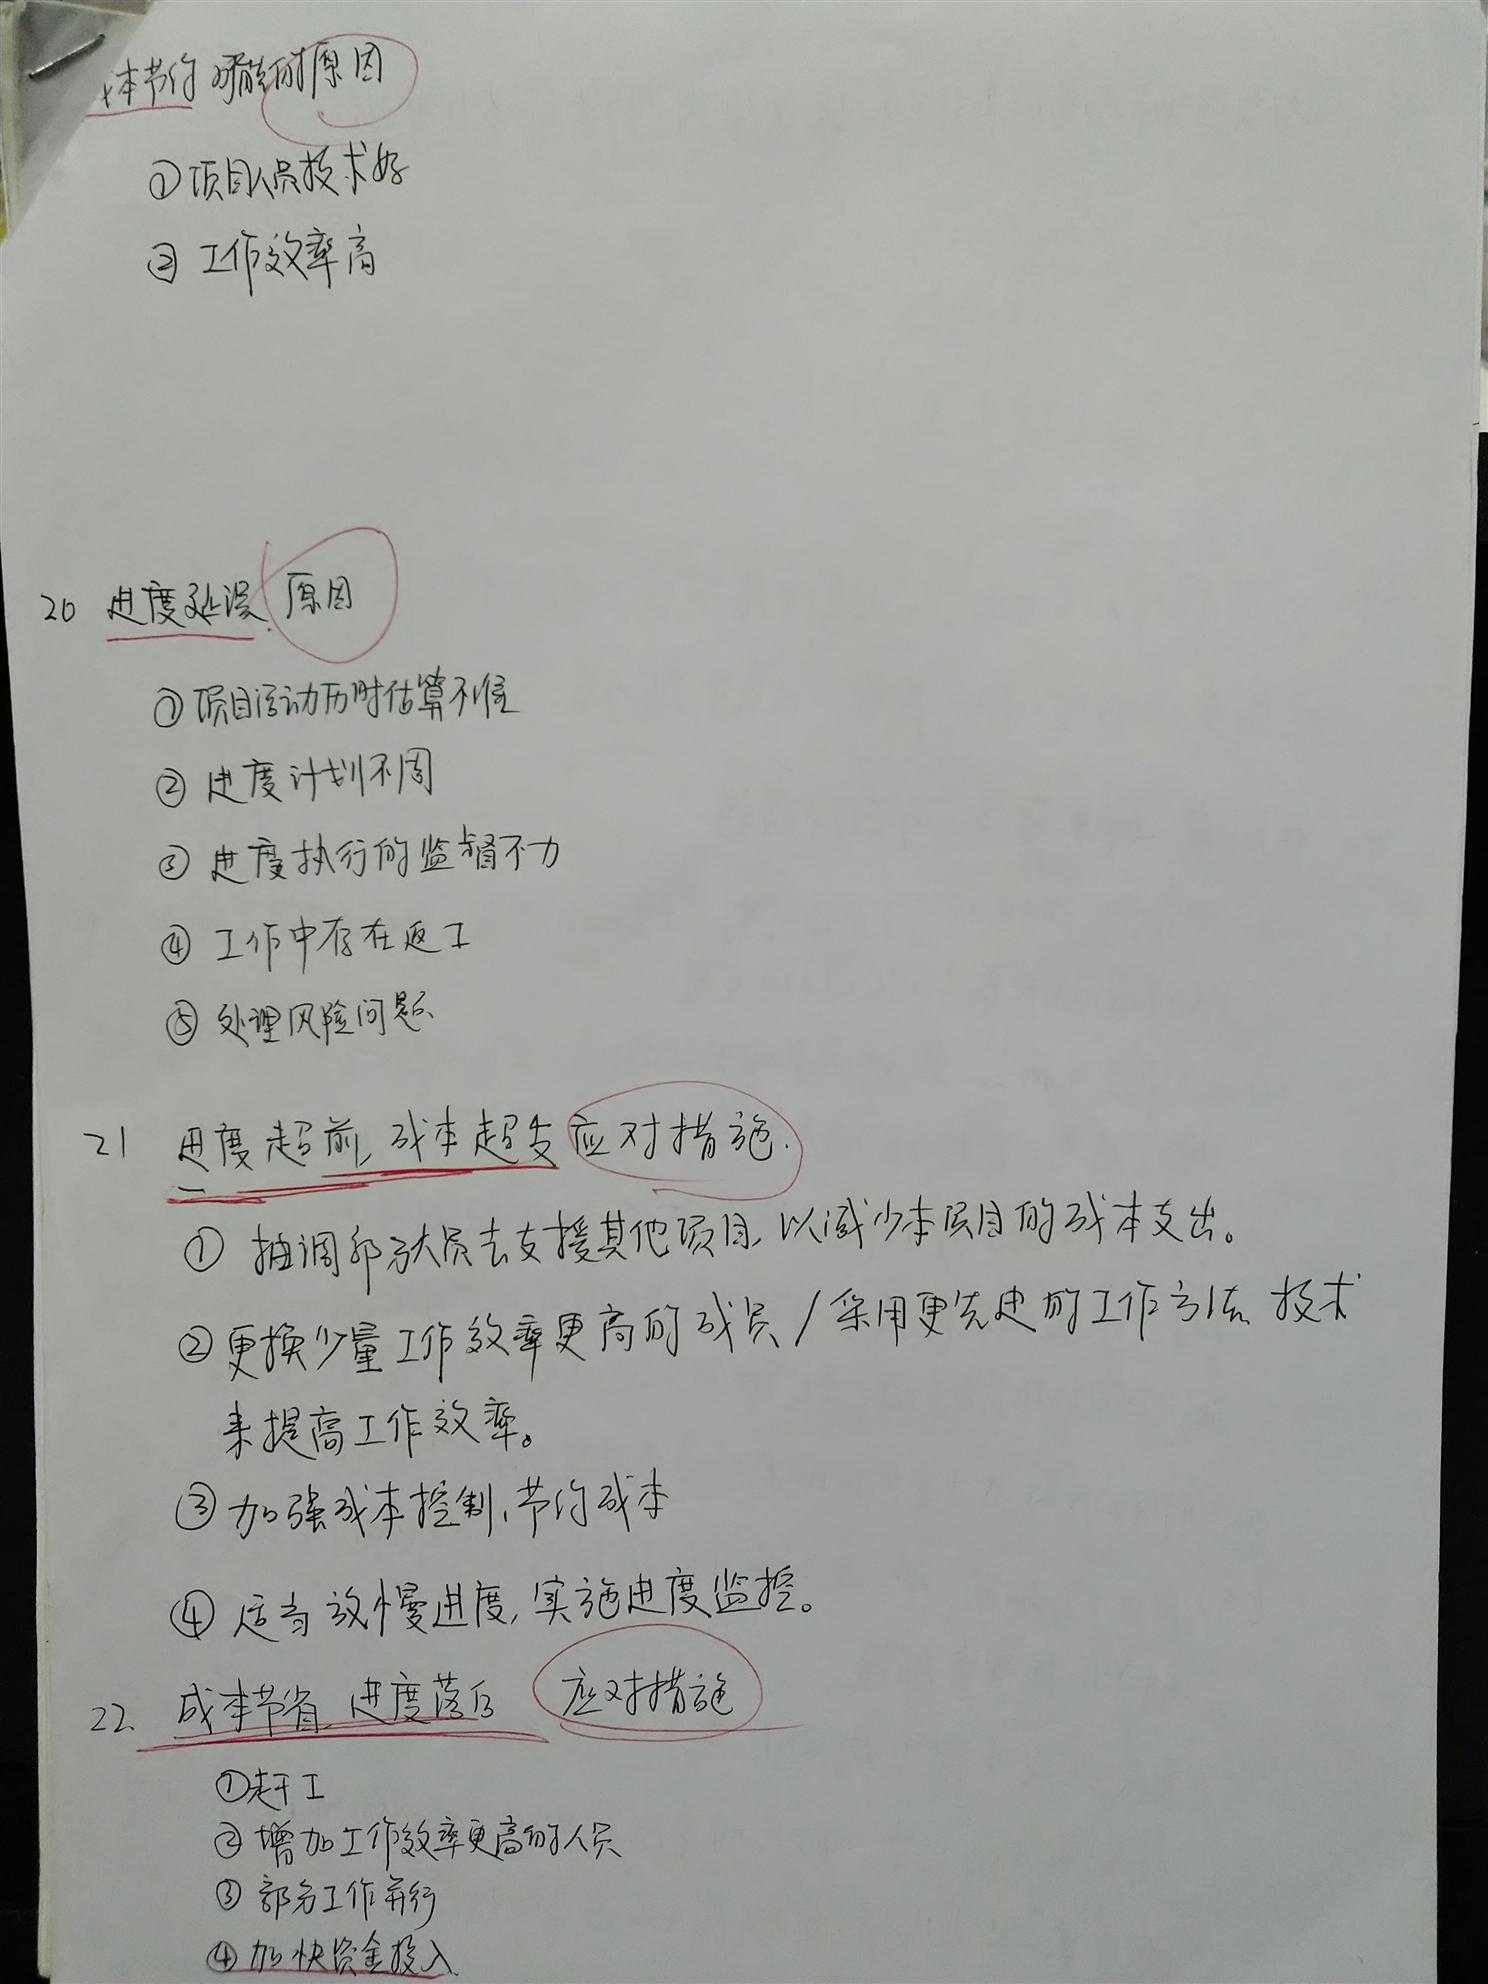 成本节约可能的原因
①项目人员技术好
② 工作效率高
20 进度延误 原因
①项目活动历时估算不准
② 进度计划不周
③ 进度执行的监督不力
④ 工作中存在返工
⑤ 处理风险问题
21 进度超前、成本超支 应对措施.
① 抽调部分人员去支援其他项目、以减少本项目的成本支出。
② 更换少量工作效率更高的成员/采用更先进的工作方法 技术
来提高工作效率。
③ 加强成本控制、节约成本
④ 适当放慢进度,实施进度监控。
22. 成本节省、进度落后 应对措施
①赶工
② 增加工作效率更高的人员
③ 部分工作并行
④ 加快资金投入